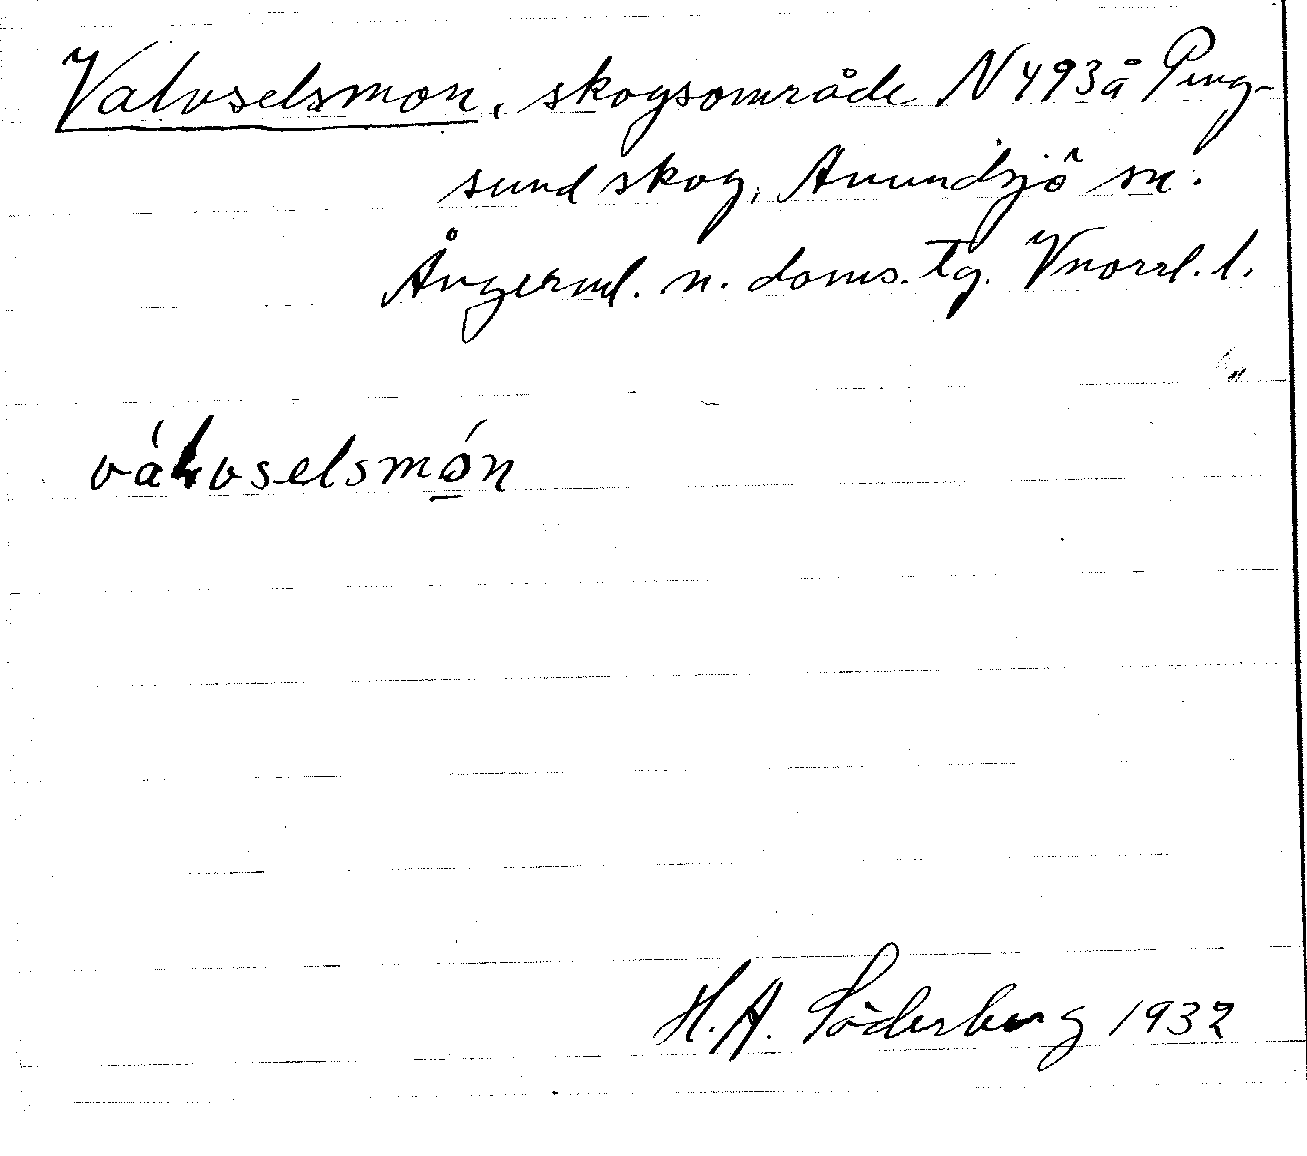 Valvselsmon, skogsområde N 493 å Ping-
sund skog, Anundsjö sn.
Ångerml. n. doms. tg. Vnorrl. l.
válvselsmó̲n
H. A. Söderberg 1932